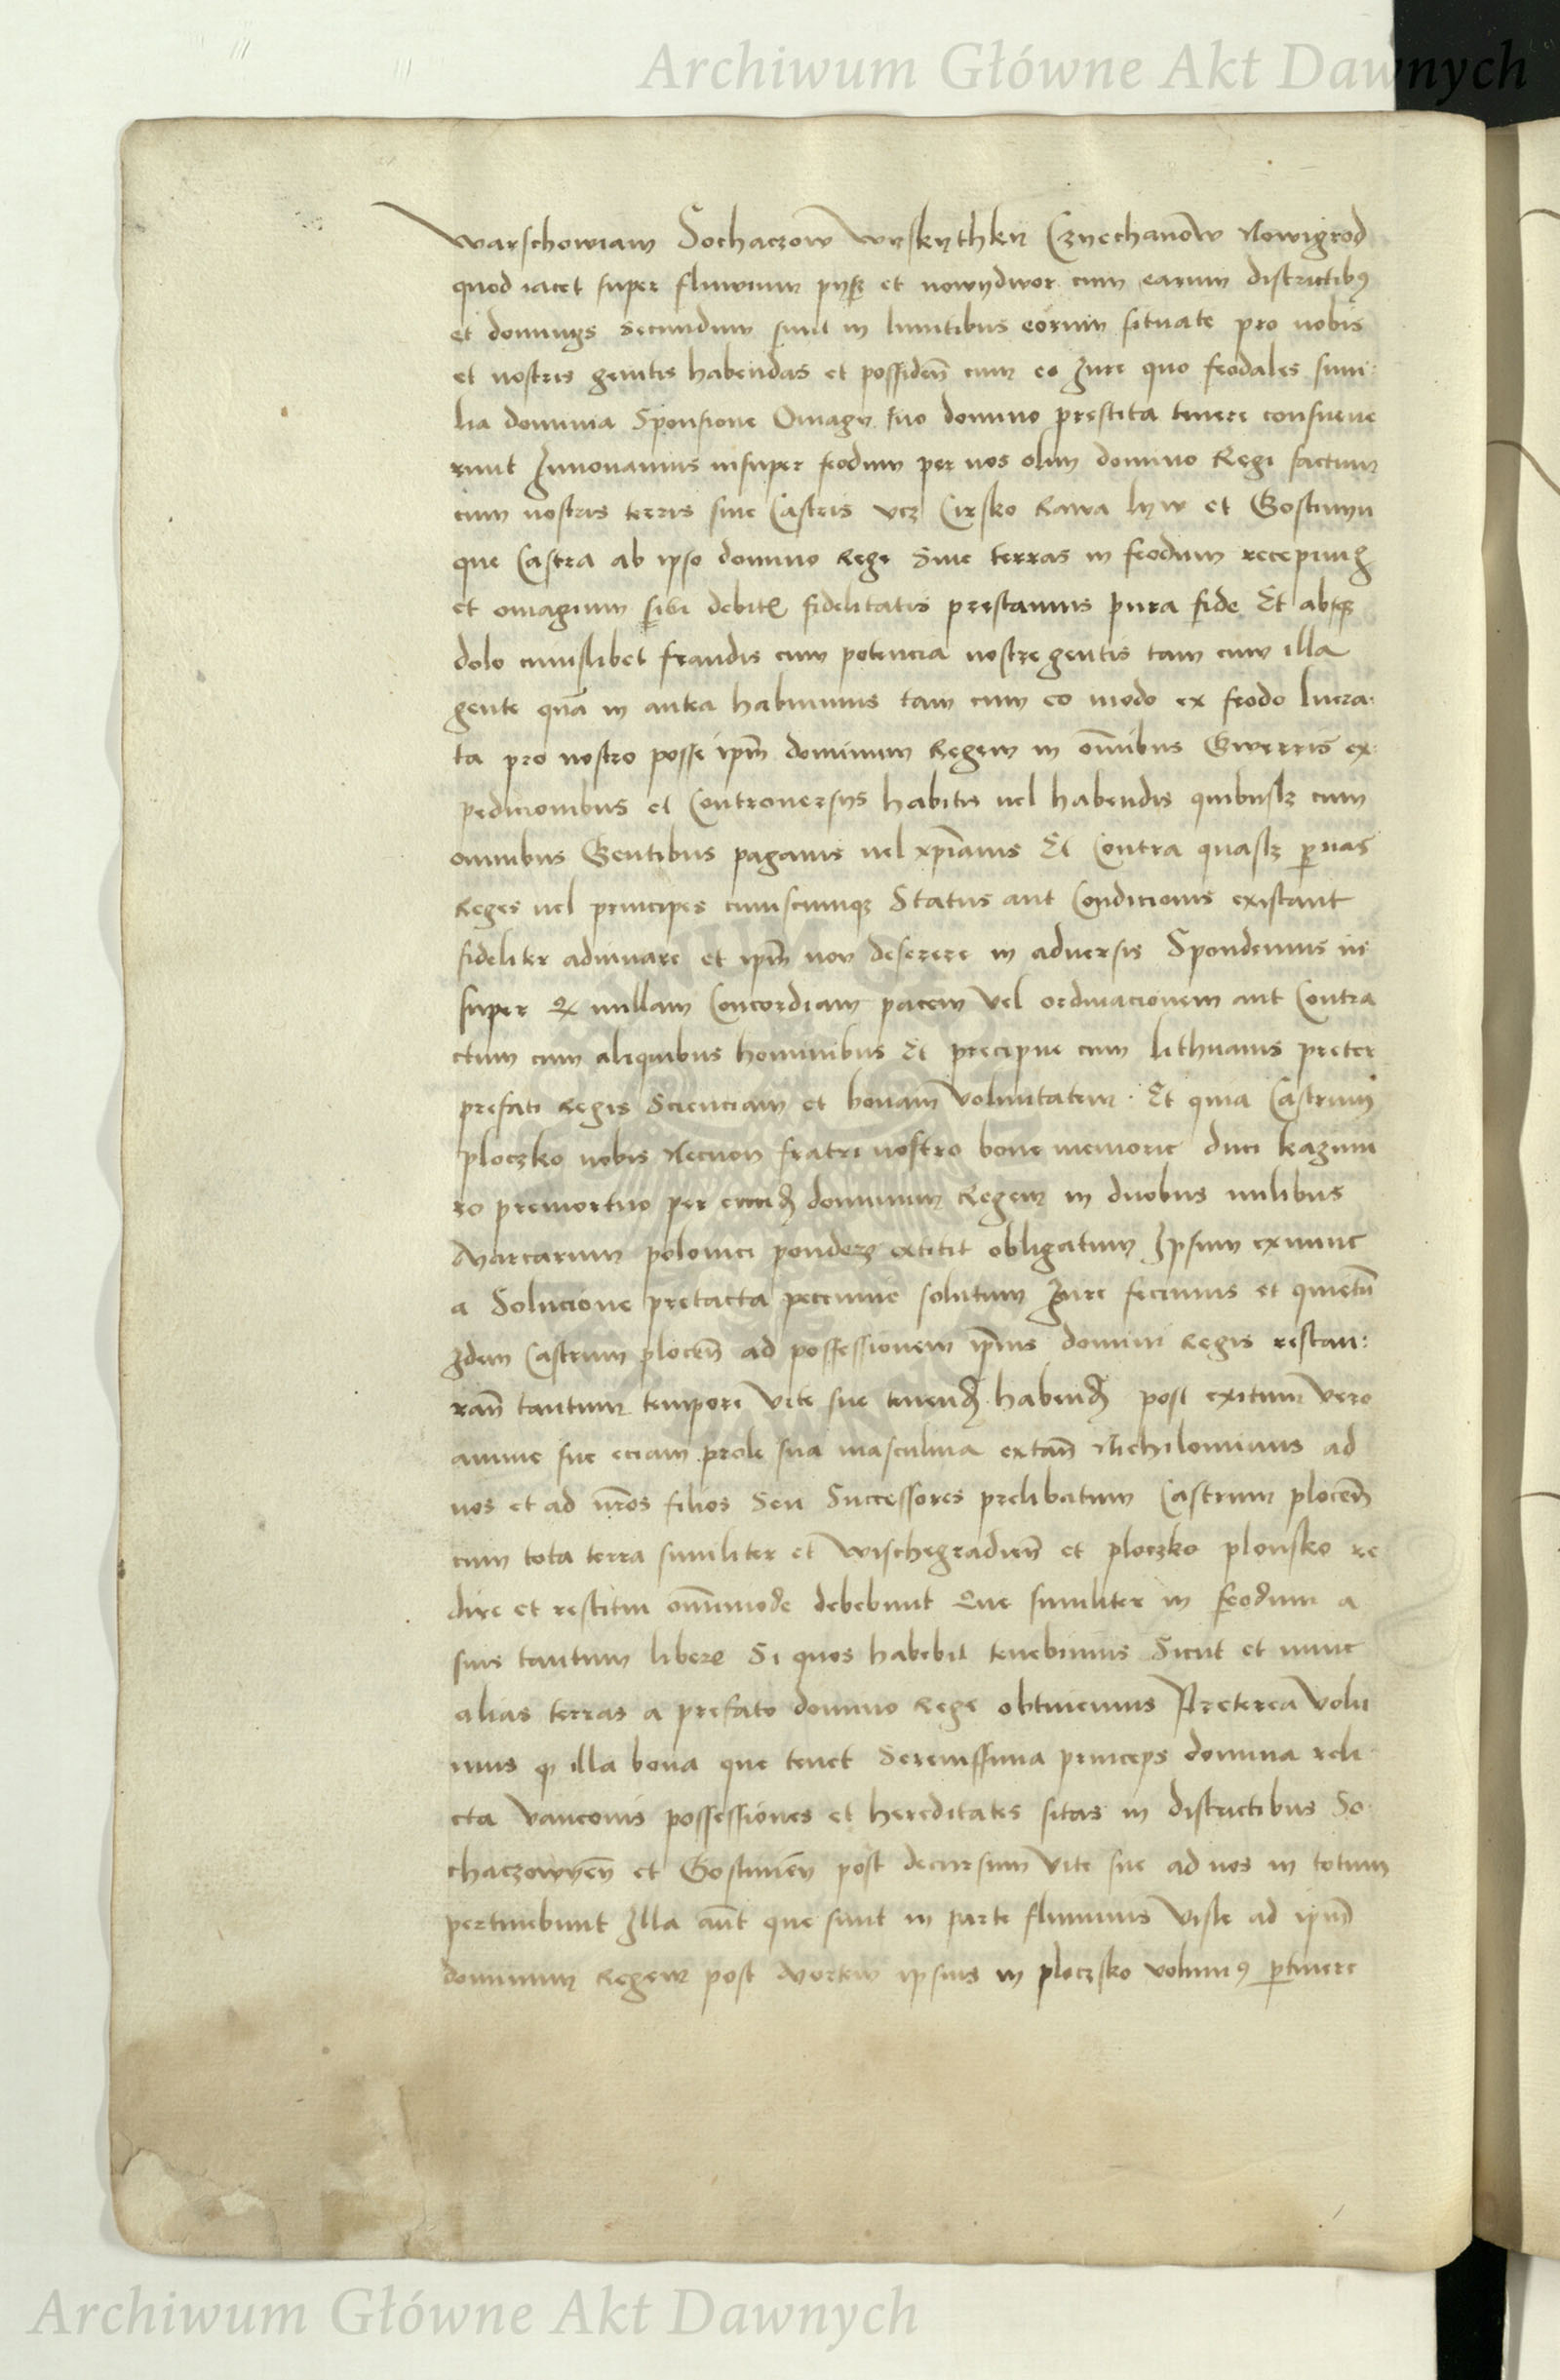 Archiwum Główne Akt Dawnych
Warschowiam Sochaczow Wyskythky Czyechanow Nowigrod
quod iacet super fluuium pysz et nowydwor cum earum districtibus
et dominijs secundum sunt in limitibus eorum situate pro nobis
et nostris genitis habendas et possidend cum eo Jure quo feodales simi:
lia dominia Sponsione Omagij suo domino prestita tenere consueue
runt Jnnouamus insuper feodum per nos olim domino Regi factum
cum nostris terris siue Castris vcz Cirsko Rawa lyw et Gostinyn
que Castra ab ipso domino Rege Siue terras in feodum recepimus
et omagium sibi debite fidelitatis prestamus pura fide Et absque
dolo cuiuslibet fraudis cum potencia nostre gentis tam cum illa
gente quam in antea habuimus tam cum eo modo ex feodo lucra:
ta pro nostro posse ipm dominum Regem in omnibus Gwerris ex:
pedicionibus et Controuersijs habitis uel habendis quibuslz cum
omnibus Gentibus paganis uel xpianis Et Contra quaslz personas
Reges uel principes cuiuscumque Status aut Condicionis existant
fideliter adiuuare et ipm non deserere in aduersis Spondemus in
super quod nullam Concordiam pacem Vel ordinacionem aut Contra
ctum cum aliquibus hominibus Et precipue cum lithuanis preter
prefati Regis Scienciam et bonam Voluntatem Et quia Castrum
ploczko nobis Necnon fratri nostro bone memorie duci kazimi
ro premortuo per eundem dominum Regem in duobus milibus
Marcarum polonici ponderis extitit obligatum Jpsum exnunc
a Solucione pretacta pecunie solutum Jure fecimus et quietum
Jdem Castrum plocen ad possessionem ipsius domini Regis restau:
ran tantum tempori Vite sue tenend habend post exitum vero
anime sue eciam prole sua masculina extan Nichilominus ad
nos et ad nros filios Seu Successores prelibatum Castrum plocen
cum tota terra similiter et Wischegradien et ploczko plonsko re
dire et restitui omnimode debebunt Que similiter in feodum a
suis tantum libere Si quos habebit tenebimus Sicut et nunc
alias terras a prefato domino Rege obtinemus Preterea Volu
mus quod illa bona que tenet Serenissima princeps domina reli
cta Vanconis possessiones et hereditates sitas in districtibus So
chaczowyen et Gostinien post decursum Vite sue ad nos in totum
pertinebunt Jlla aut que sunt in parte fluminis Visle ad ipm
dominum Regem post Mortem ipsius in ploczsko volumus pertinere
Archiwum Główne Akt Dawnych